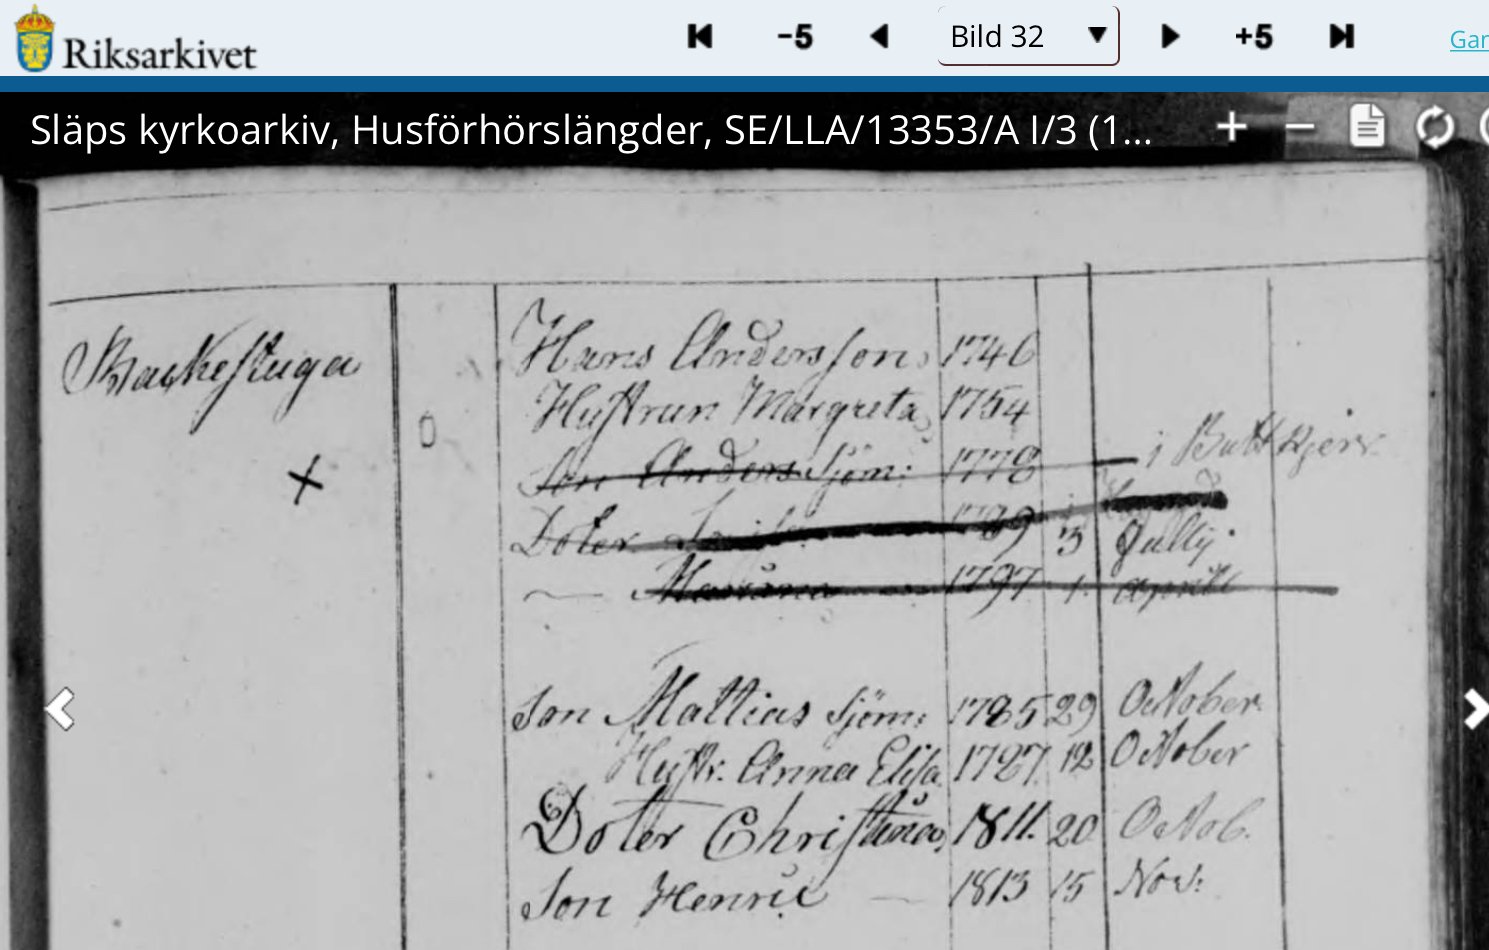 Riksarkivet
-5
Bild 32
+5
Gar
Släps kyrkoarkiv, Husförhörslängder, SE/LLA/13353/A I/3 (1...
Backestuga
Hans Andersson 1746
Hustrun Margreta 1754
Son Anders sjöm: 1778 i
Doter 1789 3 Jullij
1797 1. April
Son Mattias Sjöm: 1785 29 October
Hustr. Anna Elisa 1787 12 October
Doter Christina 1811. 20 Octob.
Son Henric 1813 15 Nov: